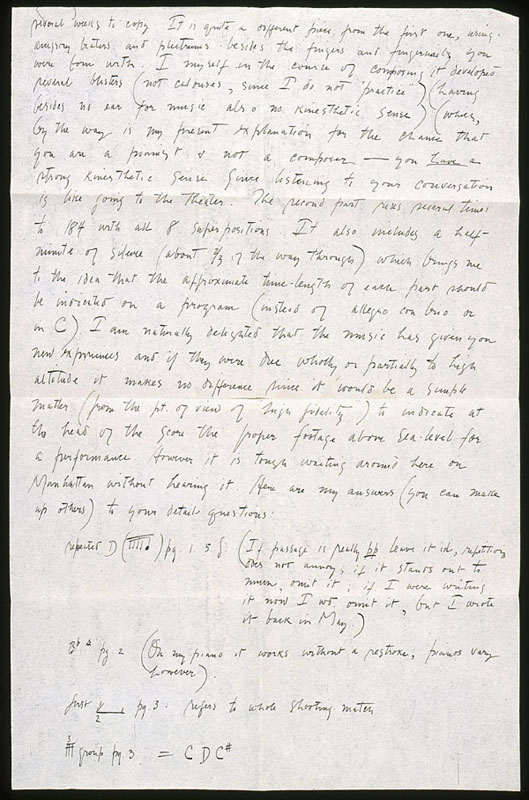 several weeks to copy. It is quite a different piece from the first one, using
accessory beaters and plectrums besides the fingers and fingernails you
were born with. I myself in the course of composing it developed
several blisters (not calouses, since I do not "practice") (having
besides no ear for music also no kinesthetic sense) (which,
by the way is my present explanation for the chance that
you are a pianist & not a composer — you have a
strong kinesthetic sense since listening to your conversation
is like going to the theater. The second part rises several times
to 184 with all 8 superpositions. It also includes a half-
minute of silence (about 2/3 of the way through) which brings me
to the idea that the approximate time-length of each part should
be indicated on a program (instead of allegro con brio or
in C). I am naturally delegated that the music has given you
new experiences and if they were due wholly or partially to high
altitude it makes no difference since it would be a simple
matter (from the pt. of view of high fidelity) to indicate at
the head of the score the proper footage above sea-level for
a performance. However it is tough waiting around here on
Manhattan without hearing it. Here are my answers (you can make
up others) to your detail questions:
repeated D pg. 1. 5 (If passage is really pp leave it in, repetition
does not annoy; if it stands out too
much, omit it; if I were writing
it now I wd omit it, but I wrote
it back in May)
Bb pg 2 (On my piano it works without a restroke, pianos vary
however).
first 2 pg 3: refers to whole shooting match
3 group pg 3. = C D C#